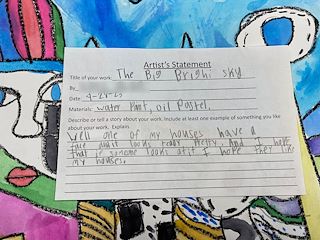 Artist's Statement
Title of your work: The Big Bright sky
By
Date 4-28-25
Materials: water Pant, oil Pastel,
Describe or tell a story about your work. Include at least one example of something you like
about your work. Explain.
Well one of my houses have a
face and it looks redy Pretty. And I hope
that if someone looks at it I hope they like
my houses.